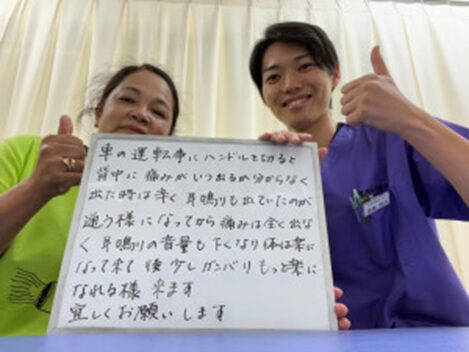 車の運転中にハンドルを切ると
背中に痛みがいつ出るか分からなく
出た時は辛く耳鳴りも出ていたのが
通う様になってから痛みは全く出な
く耳鳴りの音量も下くなり体は楽に
なって来て後少しガンバりもっと楽に
なれる様来ます
宜しくお願いします